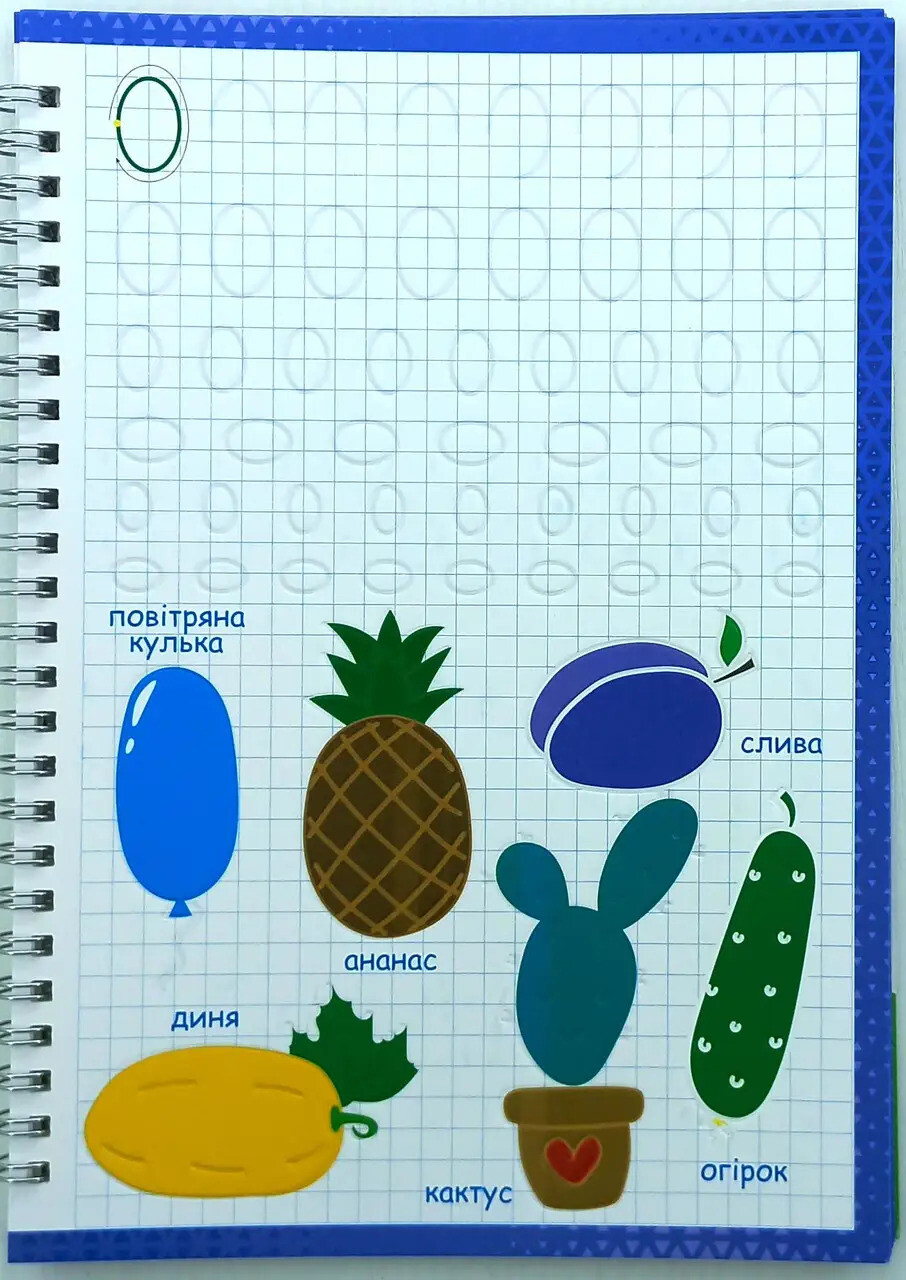 повітряна
кулька
слива
ананас
диня
огірок
кактус